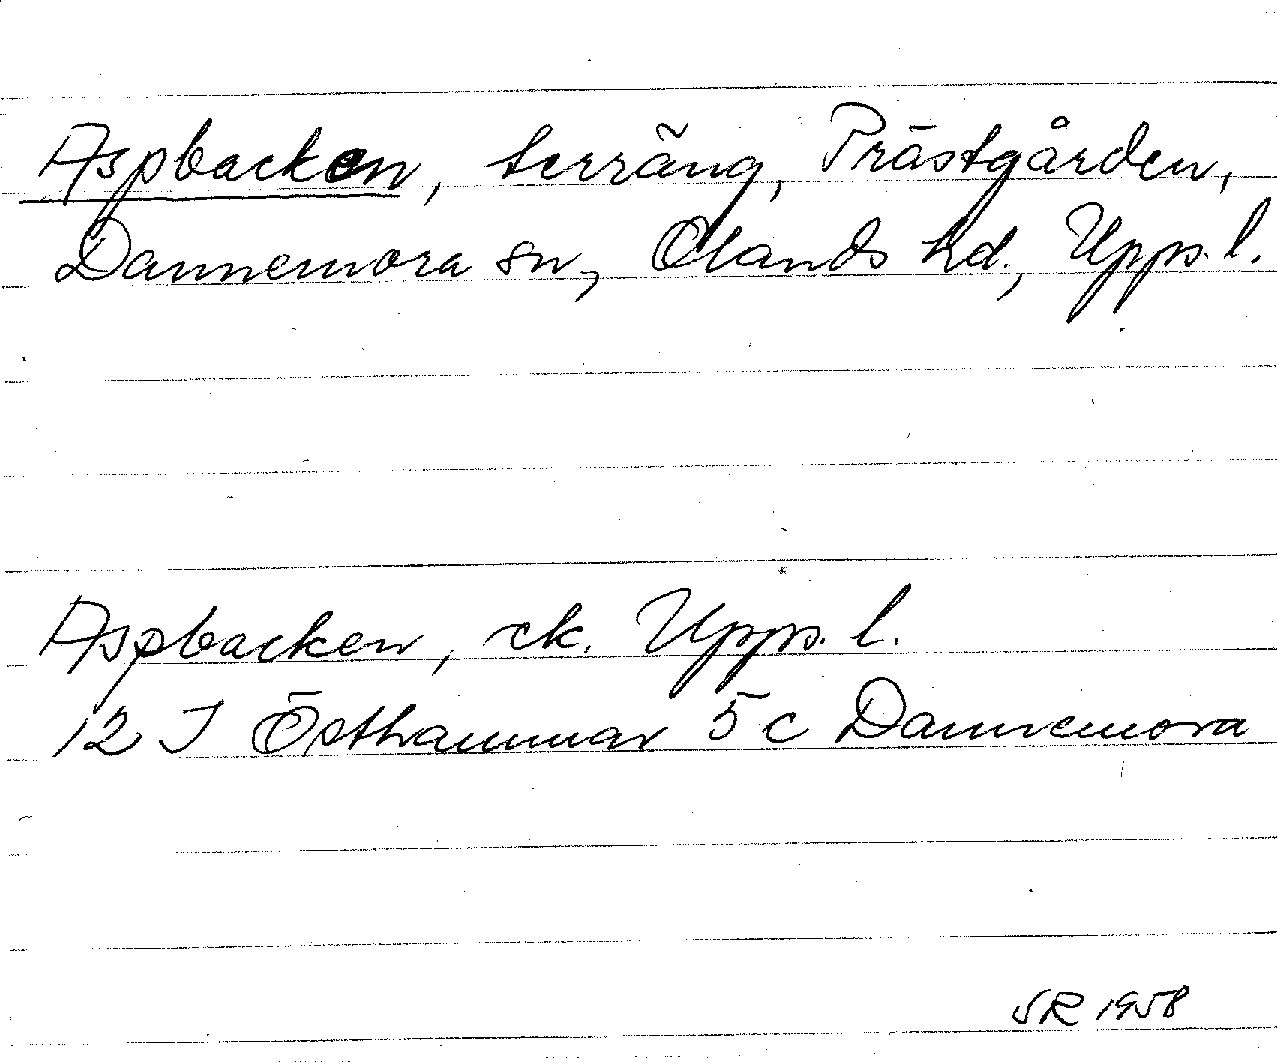 Aspbacken, terräng, Prästgården,
Dannemora sn, Olands hd., Upps. l.
Aspbacken, ek. Upps. l.
12 I Östhammar 5c Dannemora
SR 1958